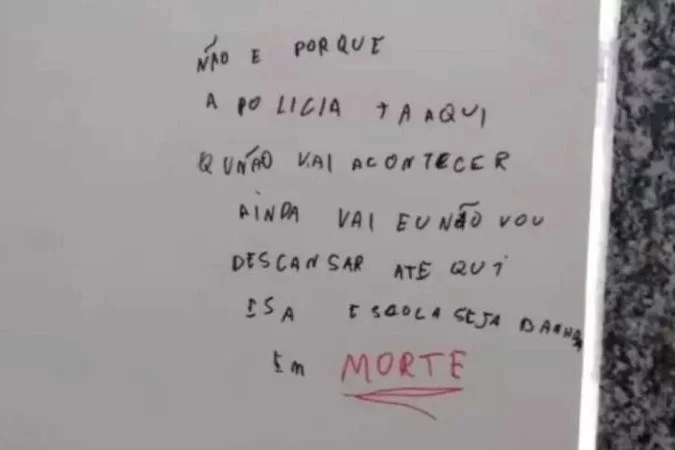 NÃO E PORQUE
A POLICIA TA AQUI
QUNÃO VAI ACONTECER
AINDA VAI EU NÃO VOU
DESCANSAR ATÉ QUI
ISA ESCOLA SEJA
Em MORTE